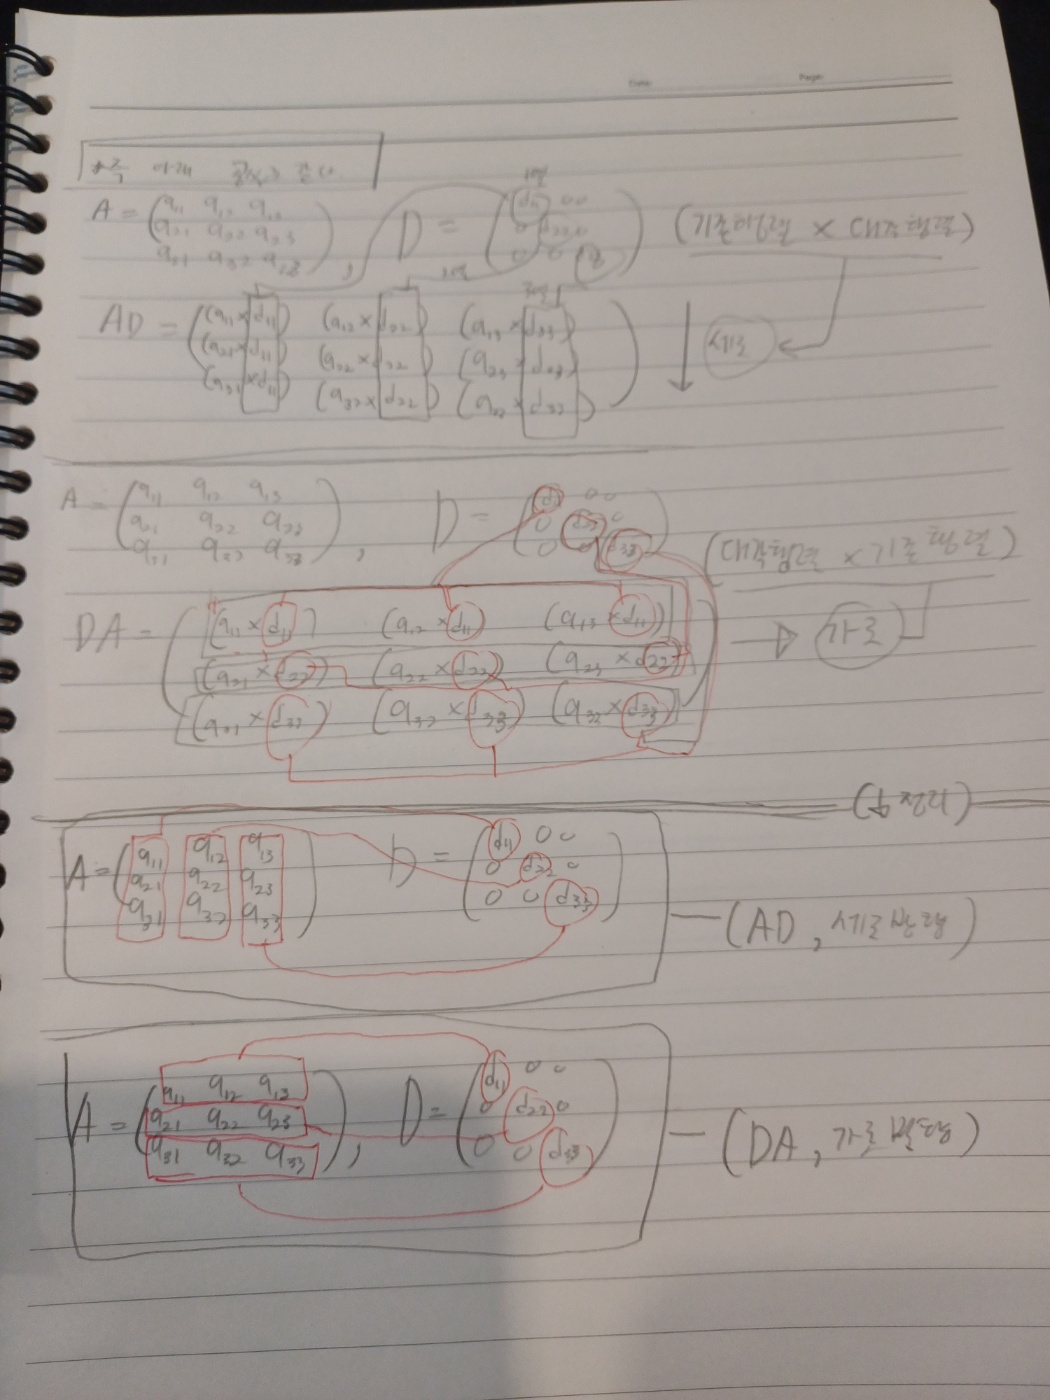 Date. Page.
A = (a11 a12 a13
a21 a22 a23
a31 a32 a33) , D = (d11 0 0
0 d22 0
0 0 d33) (기존행렬 × 대각행렬)
AD = ((a11×d11) (a12×d22) (a13×d33)
(a21×d11) (a22×d22) (a23×d33)
(a31×d11) (a32×d22) (a33×d33)) 세로
A = (a11 a12 a13
a21 a22 a23
a31 a32 a33) , D = (d11 0 0
0 d22 0
0 0 d33) (대각행렬 × 기존행렬)
DA = ((a11×d11) (a12×d11) (a13×d11)
(a21×d22) (a22×d22) (a23×d22)
(a31×d33) (a32×d33) (a33×d33)) → 가로
A = (a11 a12 a13
a21 a22 a23
a31 a32 a33) D = (d11 0 0
0 d22 0
0 0 d33) — (AD, 세로방향)
A = (a11 a12 a13
a21 a22 a23
a31 a32 a33) , D = (d11 0 0
0 d22 0
0 0 d33) — (DA, 가로방향)